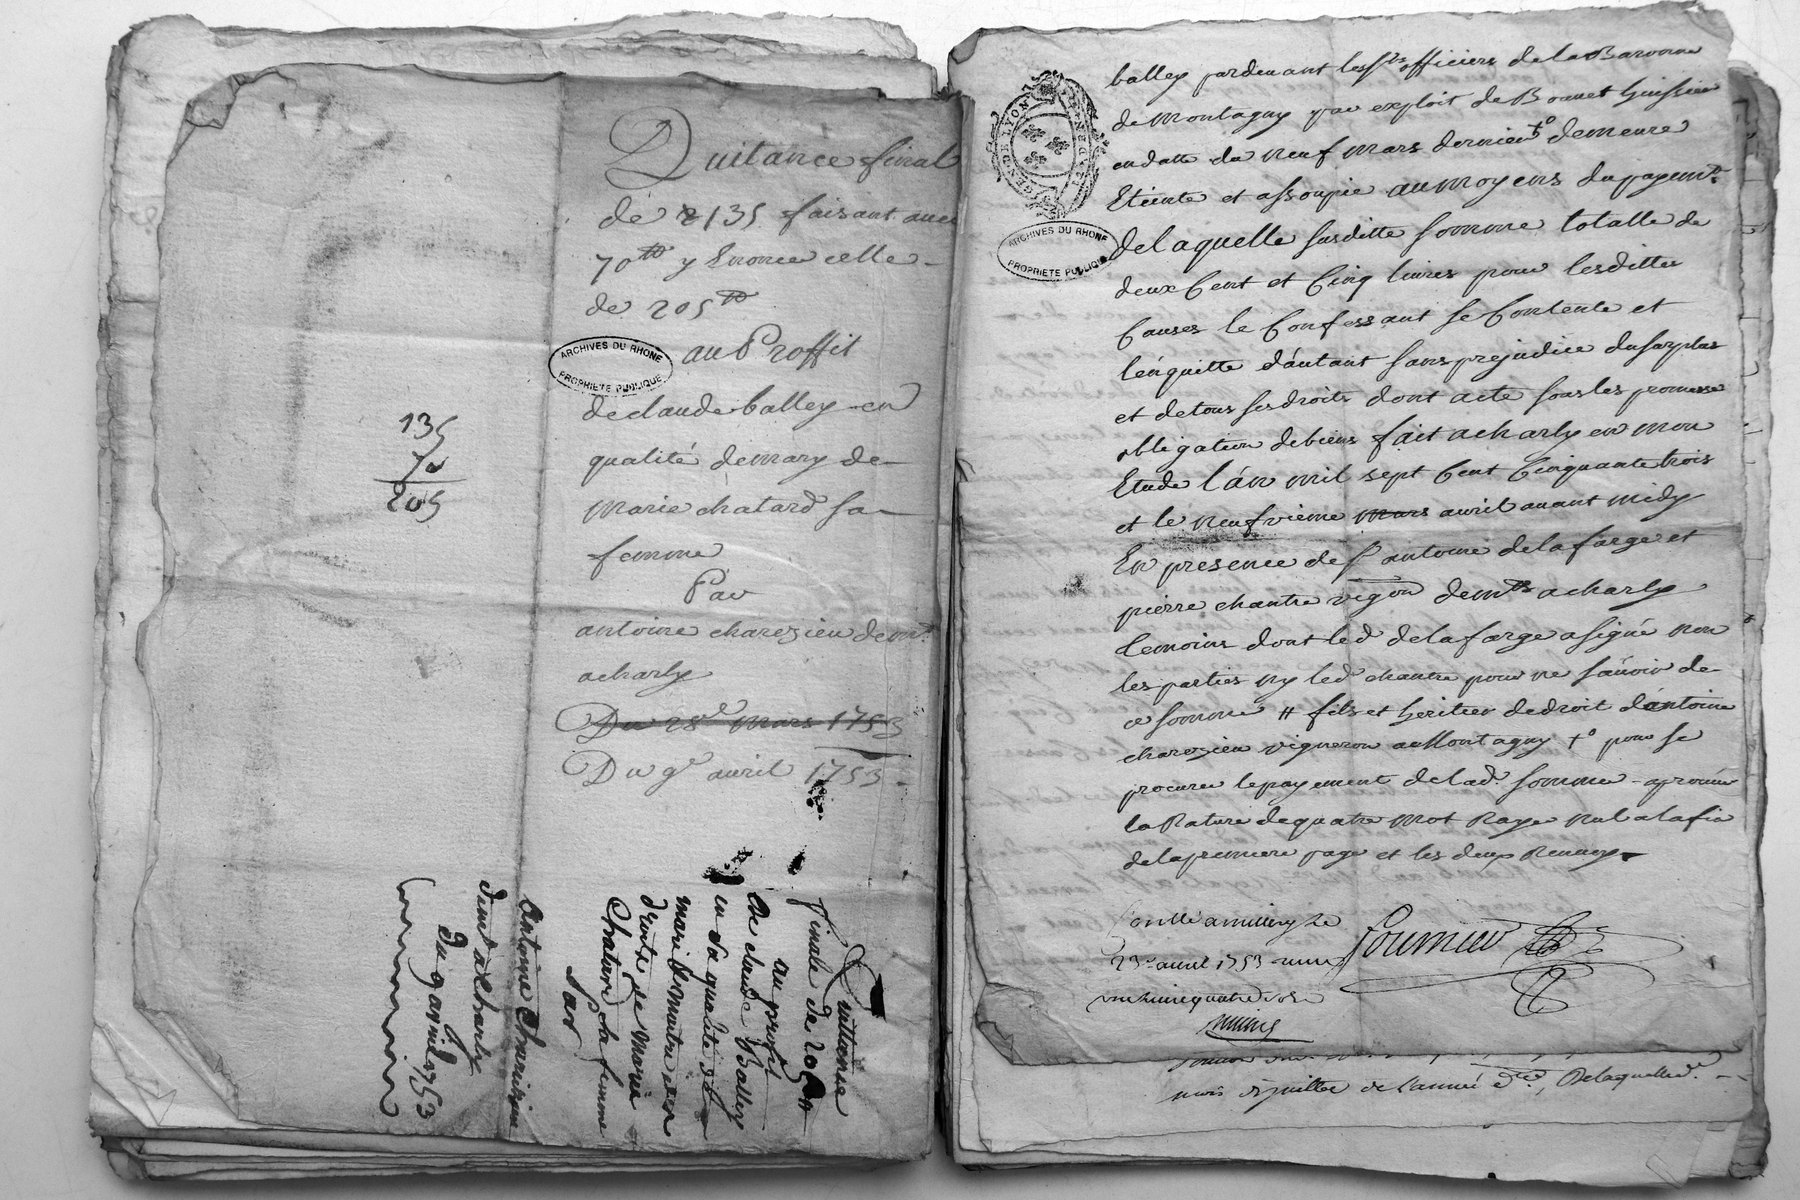 Quitance final
de 2135 faisant avec
70tt y Enoncee celle
de 205tt
au Proffit
de claude balley en
qualité de mary de
Marie chatard sa
femme
Par
antoine charezieu demt
a charly
Du 28e mars 1753
Du 9e avril 1753
135
70
205
ARCHIVES DU RHONE
PROPRIETE PUBLIQUE
Quittance
finale de 205tt
au profit
de claude Balley
en sa qualité de
mari & maitre des
droits de Marie
Chatard sa femme
Par
Antoine
demt a Charly
du 9 avril 1753
GEN DE LYON
ARCHIVES DU RHONE
PROPRIETE PUBLIQUE
balley pardevant les srs officiers de la Baronnie
de Montagny par exploit de Bonnet huissier
en datte du neuf mars dernier to demeure
Eteinte et assoupie au moyens du payemt
de laquelle susditte somme totalle de
deux Cent et Cinq livres pour lesdittes
Causes le Confessant se Contente et
l'enquitte d'autant sans prejudice du surplus
et de tous ses droits dont acte sous les promesse
obligation de biens fait a charly en mon
Etude l'an mil sept Cent Cinquante trois
et le neufvieme mars avril avant midy
En presence de sr antoine delafarge et
pierre chantre vigon demts a charly
temoins dont led delafarge a signé non
les parties ny led chantre pour ne sçavoir de
ce somme # fils et heritier de droit d'antoine
charezieu vigneron a Montagny to pour se
procurer le payement de lad. somme aprouvé
la Rature de quatre mot Raye nul a la fin
de la premiere page et les deux Renvoy
Conllé a millery le
23e avril 1753
fournier
mois de juillet de l'année de laquelle